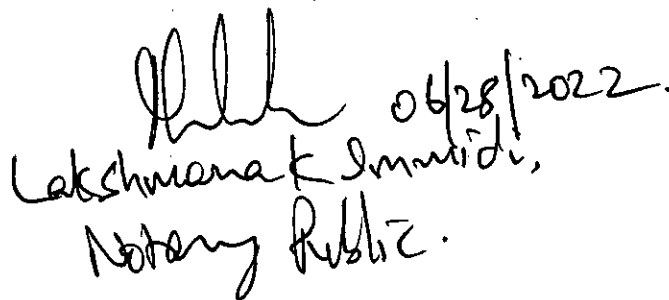 06/28/2022.
Lakshmana K Immidi,
Notary Public.